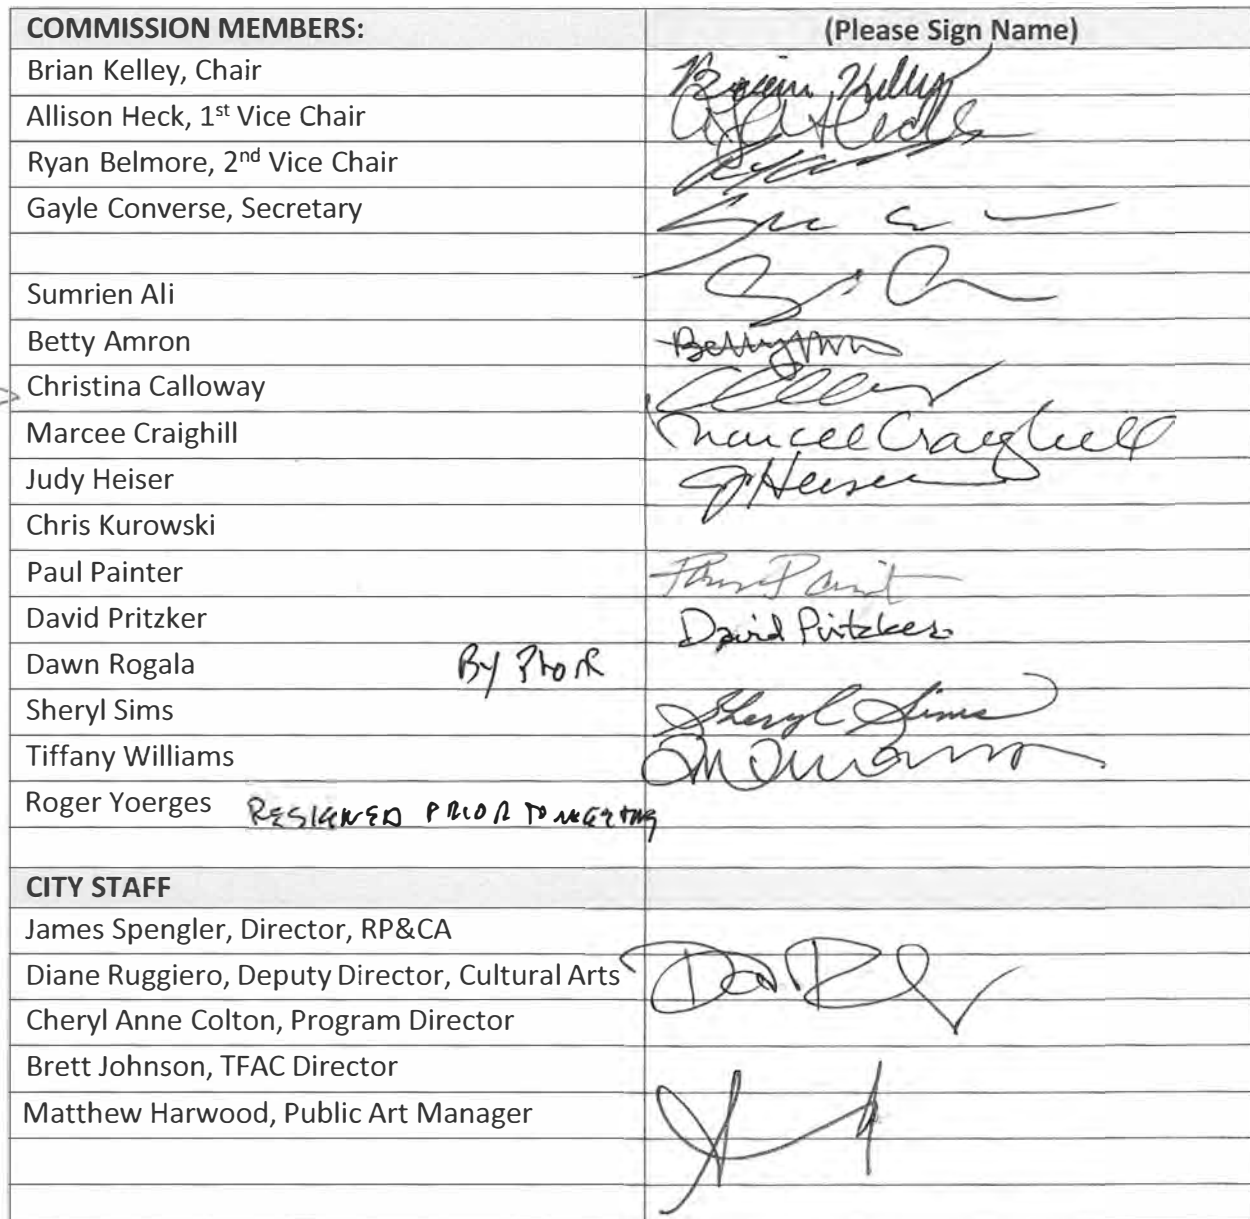 COMMISSION MEMBERS: (Please Sign Name)
Brian Kelley, Chair
Allison Heck, 1st Vice Chair
Ryan Belmore, 2nd Vice Chair
Gayle Converse, Secretary
Sumrien Ali
Betty Amron
Christina Calloway
Marcee Craighill Marcee Craighill
Judy Heiser J Heiser
Chris Kurowski
Paul Painter
David Pritzker David Pritzker
Dawn Rogala By
Sheryl Sims Sheryl Sims
Tiffany Williams
Roger Yoerges RESIGNED PRIOR TO MEETING
CITY STAFF
James Spengler, Director, RP&CA
Diane Ruggiero, Deputy Director, Cultural Arts
Cheryl Anne Colton, Program Director
Brett Johnson, TFAC Director
Matthew Harwood, Public Art Manager